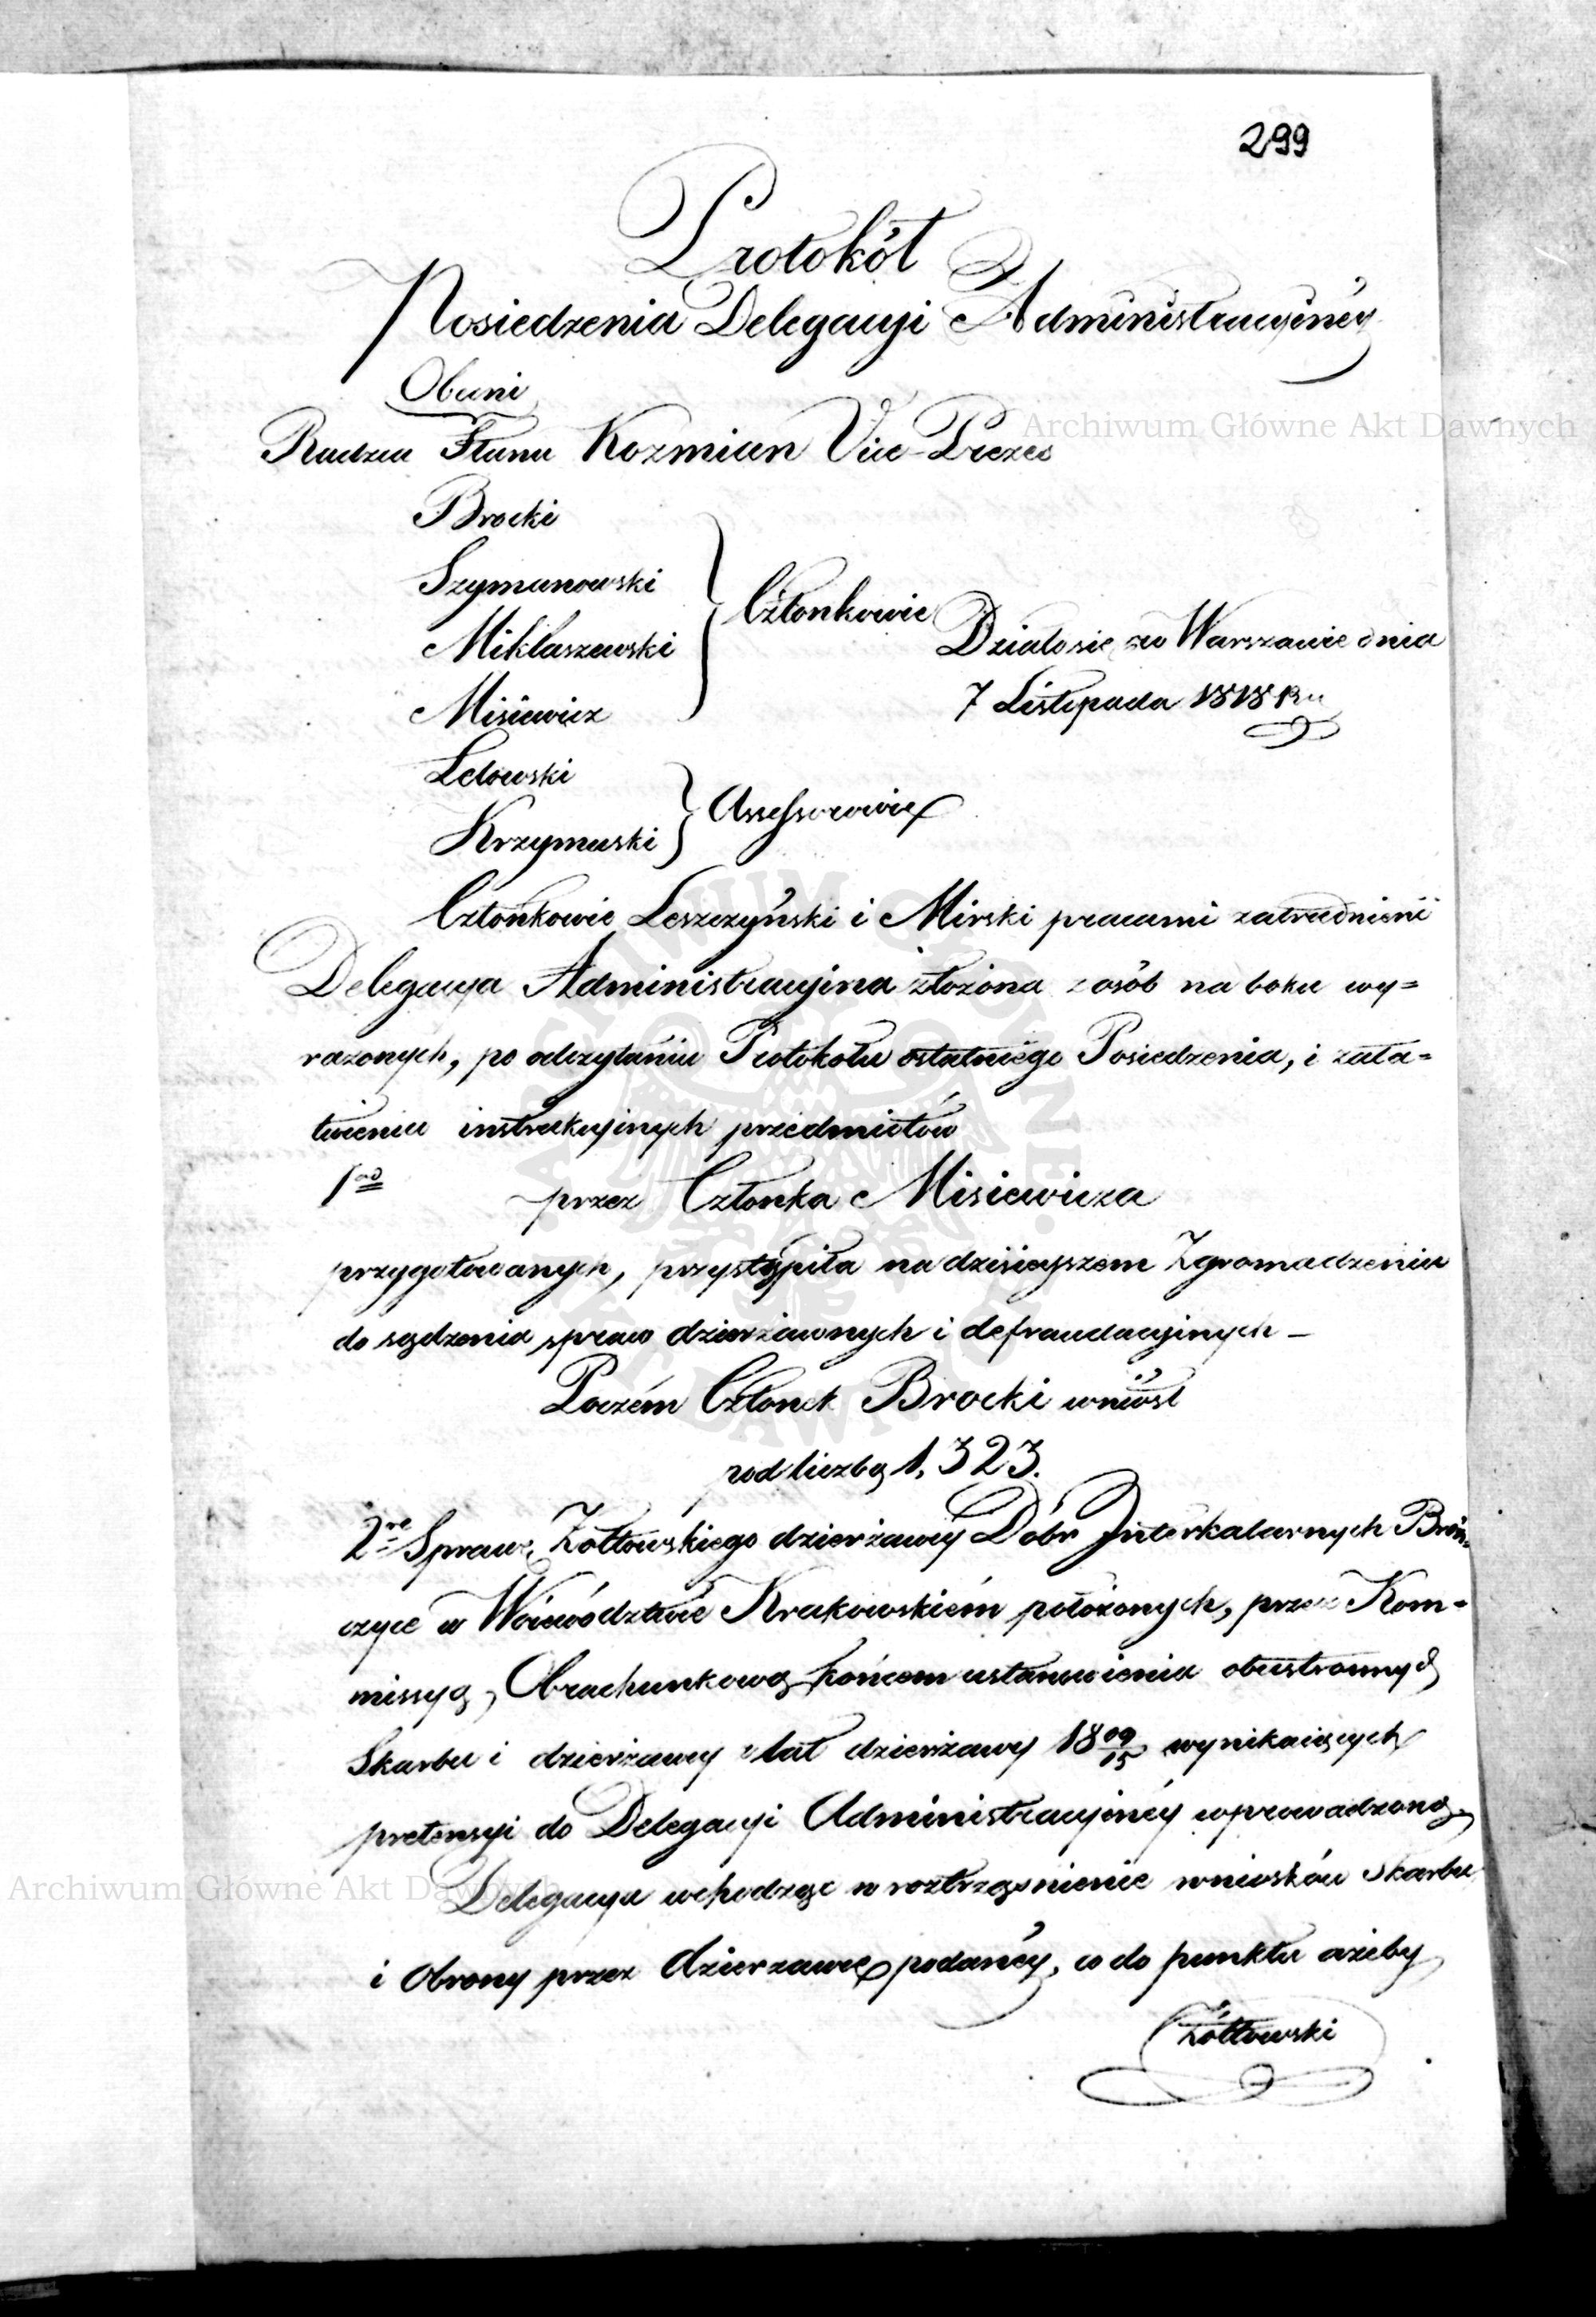 299
Protokół
Posiedzenia Delegacyi Administracyinéy
Obecni
Radzca Stanu Kozmian Vice-Prezes
Brocki
Szymanowski
Miklaszewski
Misiewicz
Członkowie
Działosię w Warszawie dnia
7 Listopada 1818 Ru
Lelowski
Krzymuski
Assessorowie
Członkowie Leszczyński i Mirski pracami zatrudnieni
Delegacya Administracyina złożona z osób na boku wy=
rażonych, po odczytaniu Protokołu ostatniego Posiedzenia, i zała=
twieniu instrukcyinych przedmiotów
1mo przez Członka Misiewicza
przygotowanych, przystąpiła na dzisieyszem Zgromadzeniu
do sądzenia spraw dzierżawnych i defraudacyinych –
Poczém Członek Brocki wniósł
pod liczbą 1,323.
2re Sprawę Zółtowskiego dzierżawcy Dóbr Interkalarnych Broń=
czyce w Woiewództwie Krakowskiém położonych, przez Kom=
missyą Obrachunkową końcem ustanowienia obustronnych
Skarbu i dzierżawcy z lat dzierżawy 1809/15 wynikaiących
pretensyi do Delegacyi Administracyinéy wprowadzoną.
Delegacya wchodząc w roztrząśnienie wniosków Skarbu
i Obrony przez dzierzawcę podanéy, co do punktu ażeby
Zółtowski
Archiwum Główne Akt Dawnych
Archiwum Główne Akt Dawnych
ARCHIWUM GŁÓWNE AKT DAWNYCH